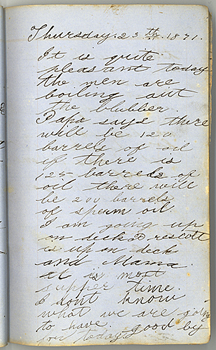 Thursday 23th 1871.
It is quite
pleasant today
the men are
boiling out
the blubber.
Papa says there
will be 120
barrels of oil
if there is
125 barrels of
oil there will
be 200 barrels
of sperm oil.
I am going up
on deck Prescott
is on deck
and Mama.
it is most
supper time.
I dont know
what we are going
to have. good by
for today